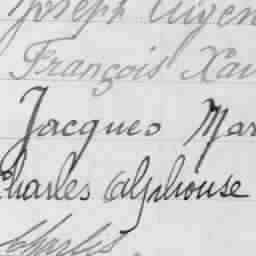 Joseph Eugen
François Xav
Jacques Mar
Charles Alphonse
Charles